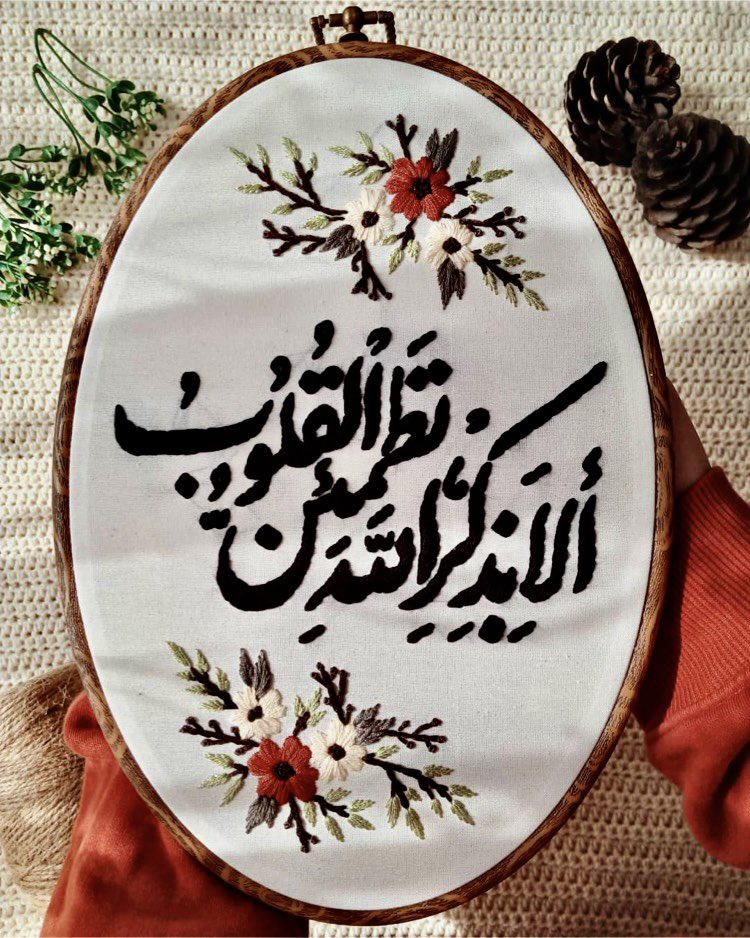 ألَا بِذِكْرِ اللَّهِ
تَطْمَئِنُّ الْقُلُوبُ